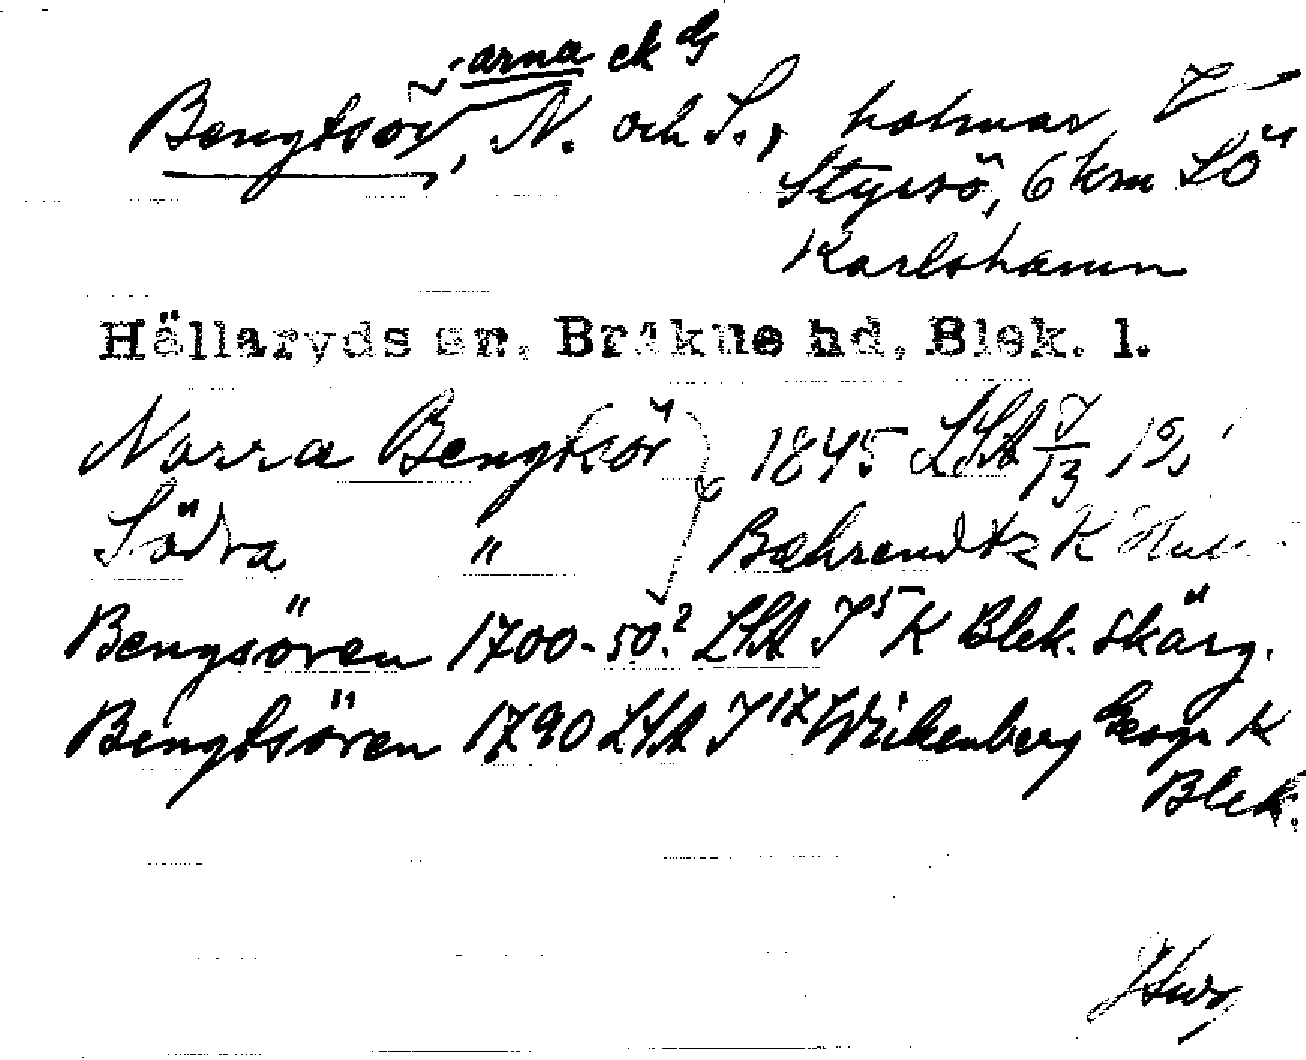 arna ek G
Bengtsör, N. och S., holmar
Styrsö, 6 km SÖ
Karlshamn
Hällaryds sn. Bräkne hd. Blek. l.
Norra Bengtsör 1845 LSA J/13 12
Södra " Bæhrendtz K
Bengsören 1700-50? LSA J5 K Blek. skärg.
Bengtsören 1790 LSA J17 Wirkenberg Geogr K
Blek.